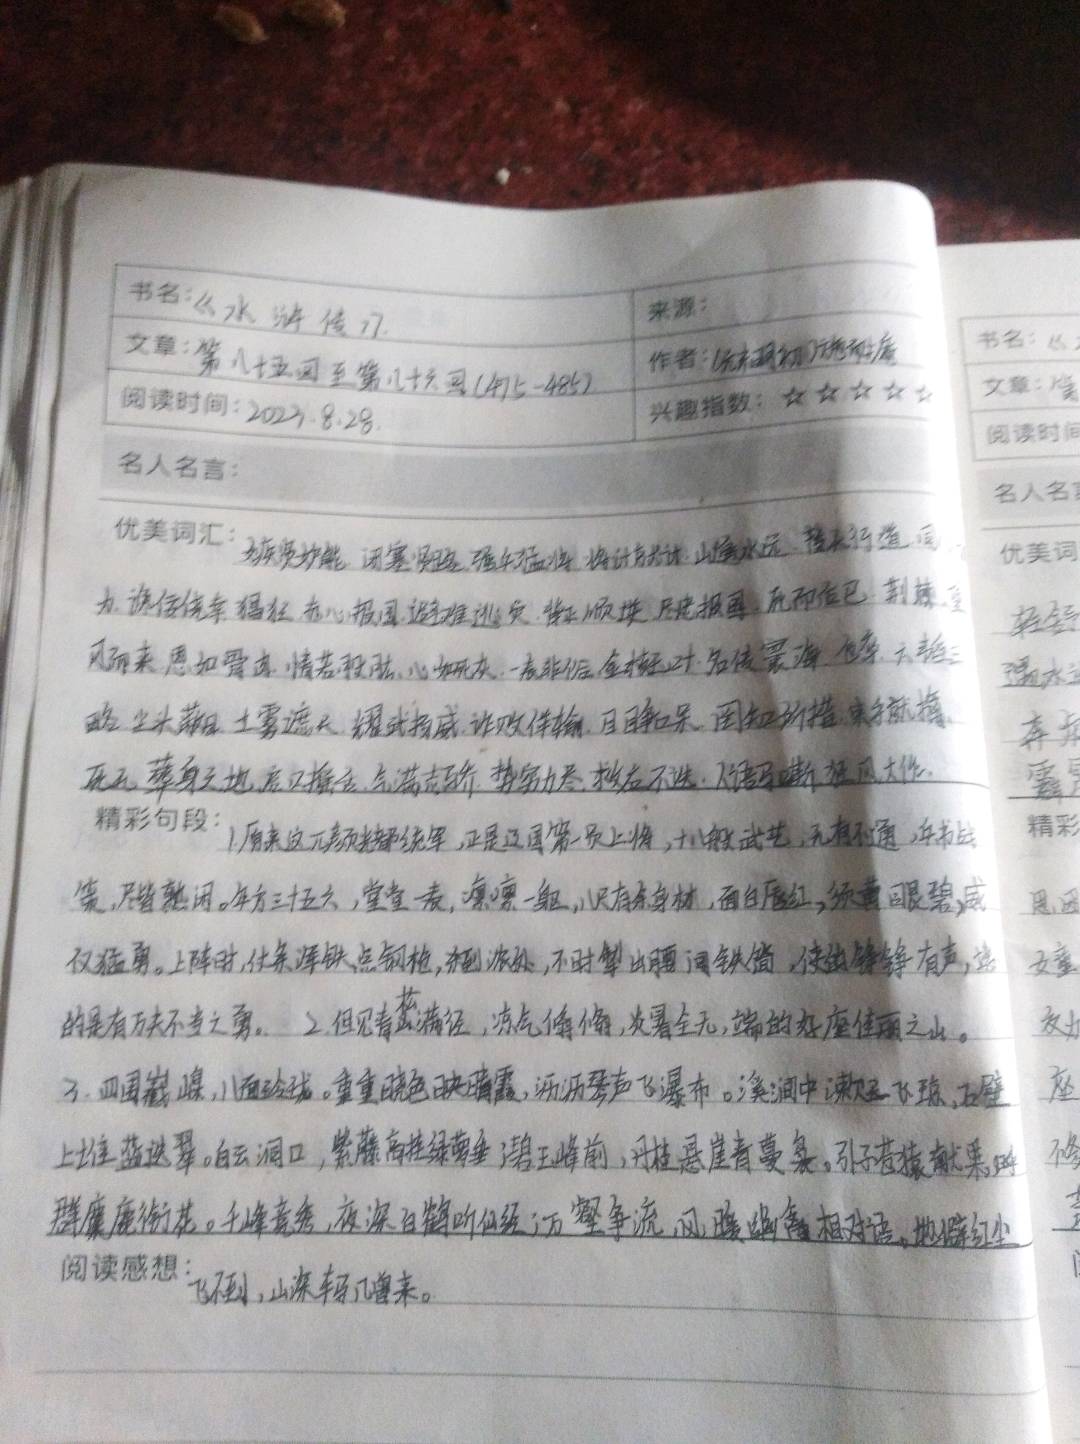 书名：《水浒传》
来源：
文章：第八十五回至第八十六回(475-485)
作者：(元末明初)施耐庵
阅读时间：2023.8.28.
兴趣指数：☆☆☆☆☆
名人名言：
优美词汇：嫉贤妒能 闭塞贤路 强兵猛将 将计就计 山遥水远 替天行道 同
为 谗佞侥幸 猖狂 赤心报国 避难逃灾 尽忠报国 死而后已 荆棘
风而来 恩如骨肉 情若股肱 心如死灰 一表非俗 名传 六韬三
略 土雾遮天 耀武扬威 诈败佯输 目睁口呆 罔知所措 束手就擒
死无葬身之地 气满 势穷力尽 人语马嘶 狂风大作
精彩句段：1.原来这兀颜统军，正是辽国第一员上将，十八般武艺，无有不通，兵书战
策，尽皆熟闲。年方三十五六，堂堂一表，凛凛一躯，八尺有余身材，面白唇红，须黄眼碧，威
仪猛勇。上阵时，仗条浑铁点钢枪，杀到浓处，不时掣出腰间铁简，使的铮铮有声，端
的是有万夫不当之勇。 2.但见青松满径，凉气翛翛，炎暑全无，端的好座佳丽之山。
3.四围巀嵲，八面玲珑。重重晓色映晴霞，沥沥琴声飞瀑布。溪涧中漱玉飞琼，石壁
上堆蓝迭翠。白云洞口，紫藤高挂绿萝垂；碧玉峰前，丹桂悬崖青蔓袅。引子苍猿献果，呼
群麋鹿衔花。千峰竞秀，夜深白鹤听仙经；万壑争流，风暖幽禽相对语。地僻红尘
阅读感想：飞不到，山深车马几曾来。
书名：《
文章：
阅读时间
名人名言
优美词
精彩